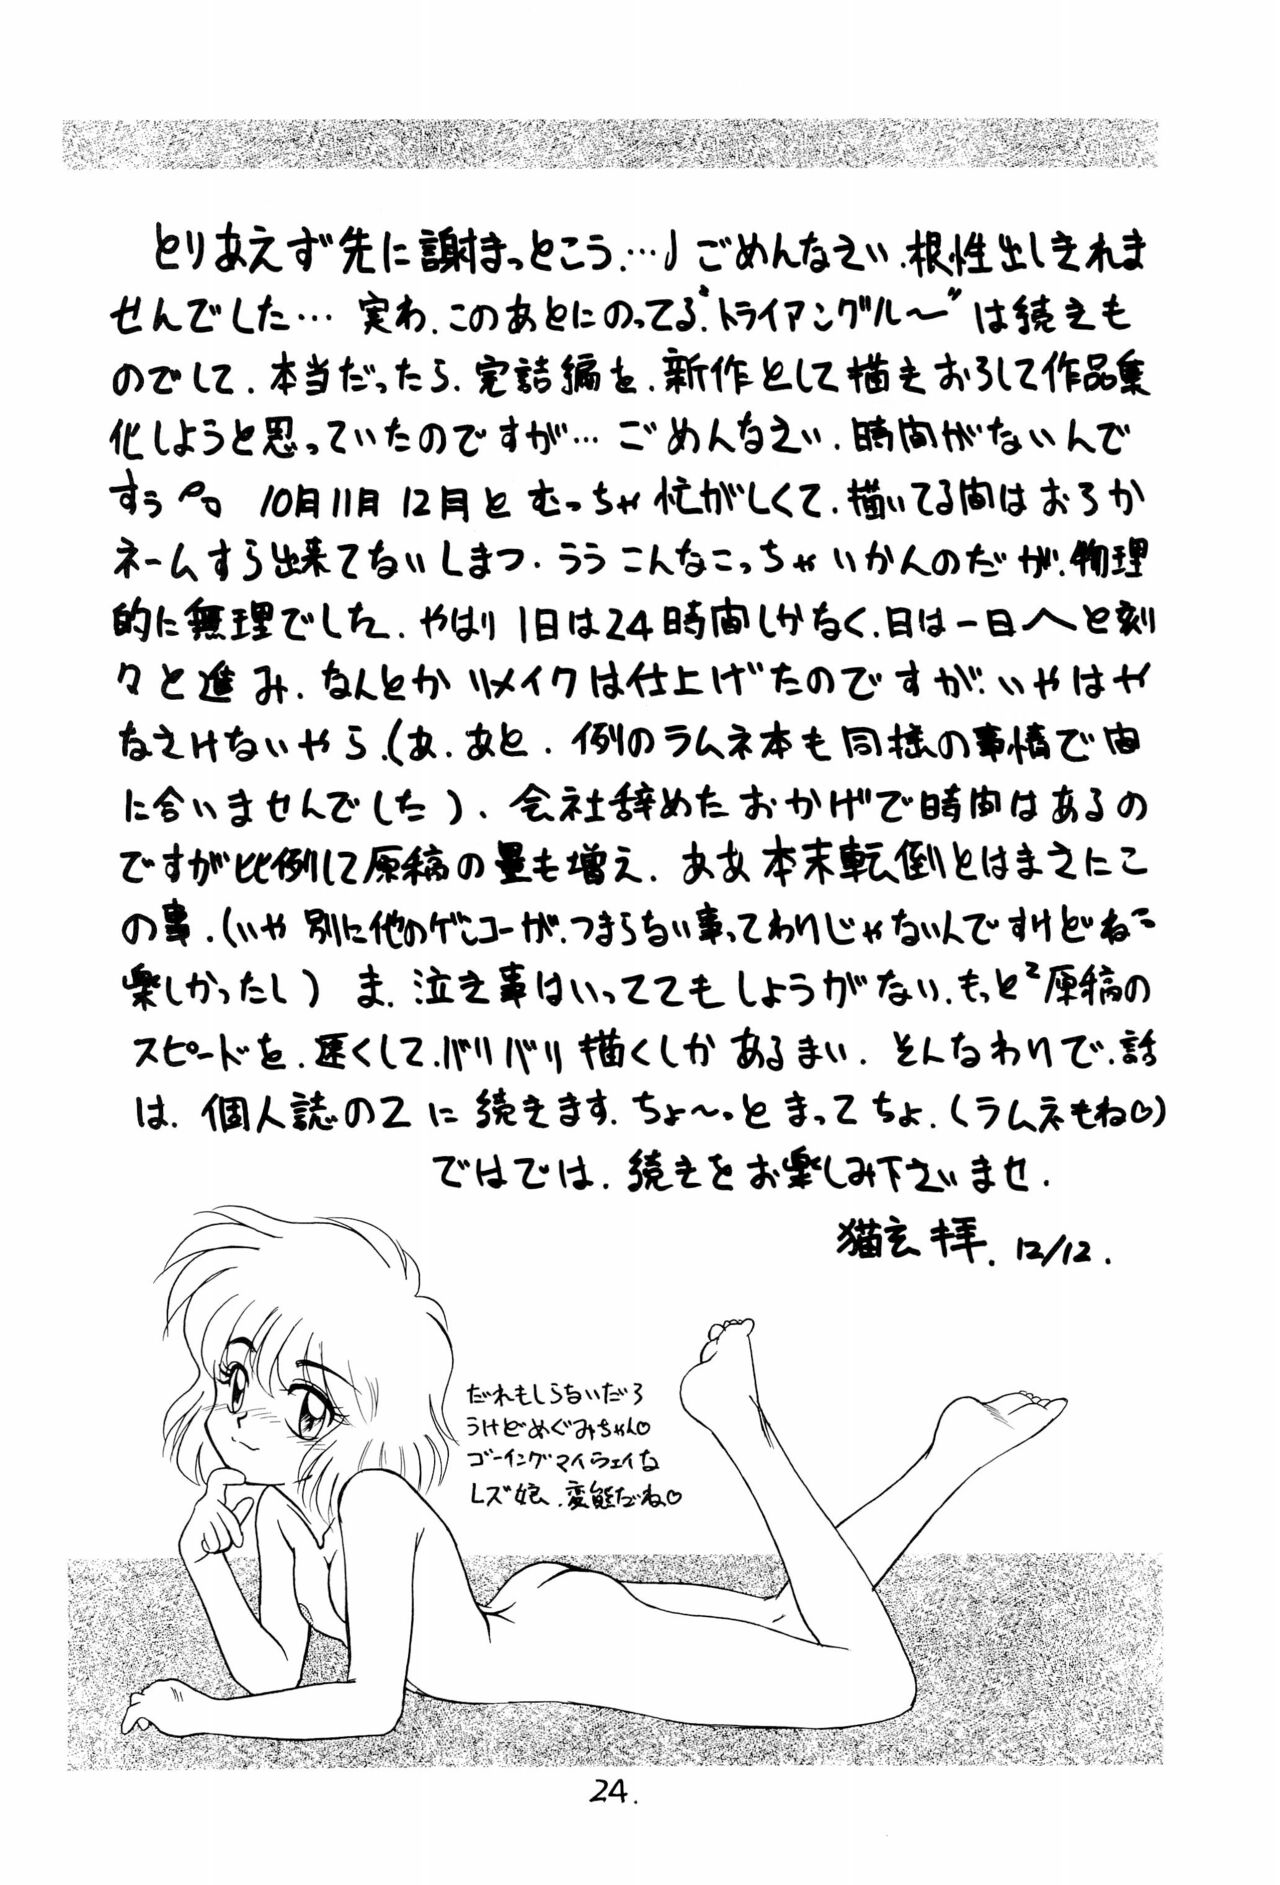 とりあえず先に謝まっとこう…♩ごめんなさい、根性出しきれま
せんでした… 実わ、このあとにのってる"トライアングル〜"は続きも
のでして、本当だったら、完結編を、新作として描きおろして作品集
化しようと思っていたのですが… ごめんなさい、時間がないんで
すぅ 10月11月12月とむっちゃ忙がしくて、描いてる間はおろか
ネームすら出来てないしまつ、ううこんなこっちゃいかんのだが、物理
的に無理でした、やはり1日は24時間しかなく、日は一日へと刻
々と進み、なんとかリメイクは仕上げたのですが、いやはや
なさけないやら、(あ、あと、例のラムネ本も同様の事情で間
に合いませんでした)、会社辞めたおかげで時間はあるの
ですが比例して原稿の量も増え、ああ本末転倒とはまさにこ
の事、(いや別に他のゲンコーが、つまらない事ってわけじゃないんですけどね
楽しかったし) ま、泣き事はいっててもしょうがない、もっと²原稿の
スピードを、速くして、バリバリ描くしかあるまい、そんなわけで、話
は、個人誌の2に続きます、ちょ〜っとまってちょ、(ラムネもね♡)
ではでは、続きをお楽しみ下さいませ、
猫玄 拝、12/12.
だれもしらないだろ
うけどめぐみちゃん♡
ゴーイングマイウェイな
レズ娘、変態だね♡
24.